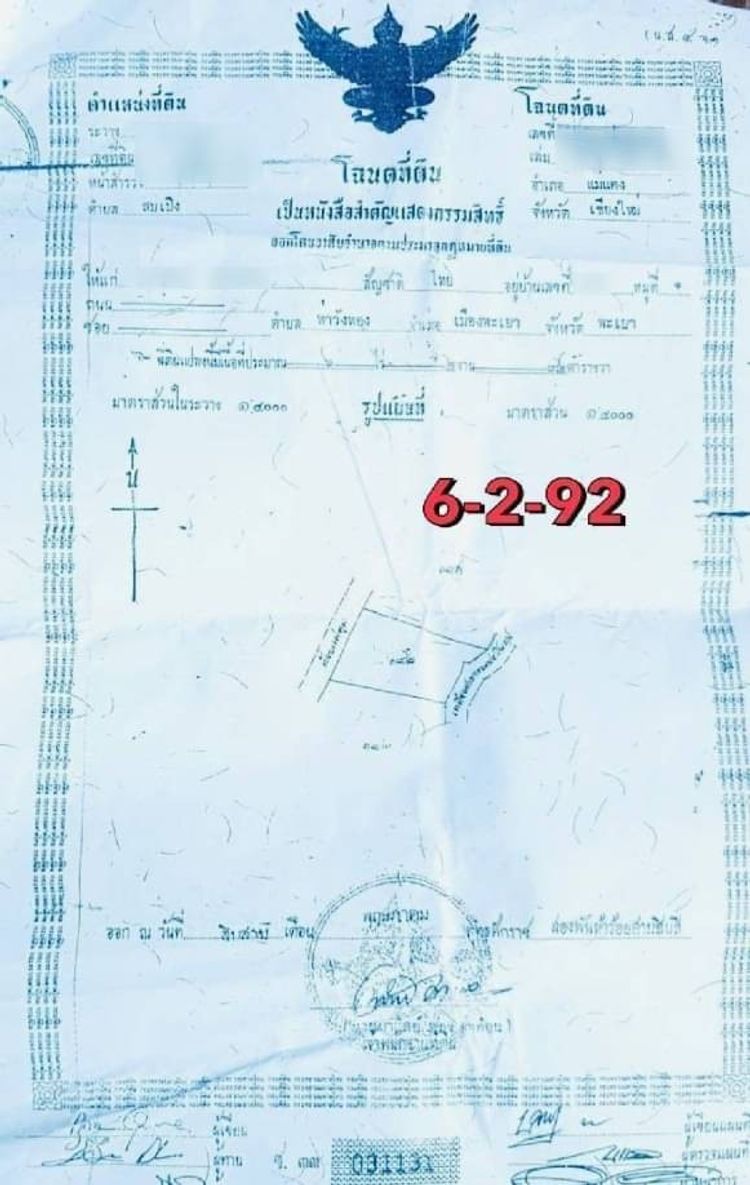 (น.ส. ๔ จ)
ตำแหน่งที่ดิน
โฉนดที่ดิน
ระวาง
เลขที่
เลขที่ดิน
เล่ม
หน้าสำรวจ
อำเภอ แม่แตง
ตำบล สบเปิง
จังหวัด เชียงใหม่
โฉนดที่ดิน
เป็นหนังสือสำคัญแสดงกรรมสิทธิ์
ออกโดยอาศัยอำนาจตามประมวลกฎหมายที่ดิน
ให้แก่ สัญชาติ ไทย อยู่บ้านเลขที่ หมู่ที่ ๑
ถนน
ซอย ตำบล ท่าวังทอง อำเภอ เมืองพะเยา จังหวัด พะเยา
ที่ดินแปลงนี้มีเนื้อที่ประมาณ ๖ ไร่ ๒ งาน ๙๒ ตารางวา
มาตราส่วนในระวาง ๑:๔๐๐๐ รูปแผนที่ มาตราส่วน ๑:๔๐๐๐
น
6-2-92
ออก ณ วันที่ สิบสาม เดือน พฤษภาคม พุทธศักราช สองพันห้าร้อยสามสิบสี่
เจ้าพนักงานที่ดิน
ผู้เขียน
ผู้เขียนแผนที่
ผู้ทาน
ผู้ตรวจแผนที่
031131